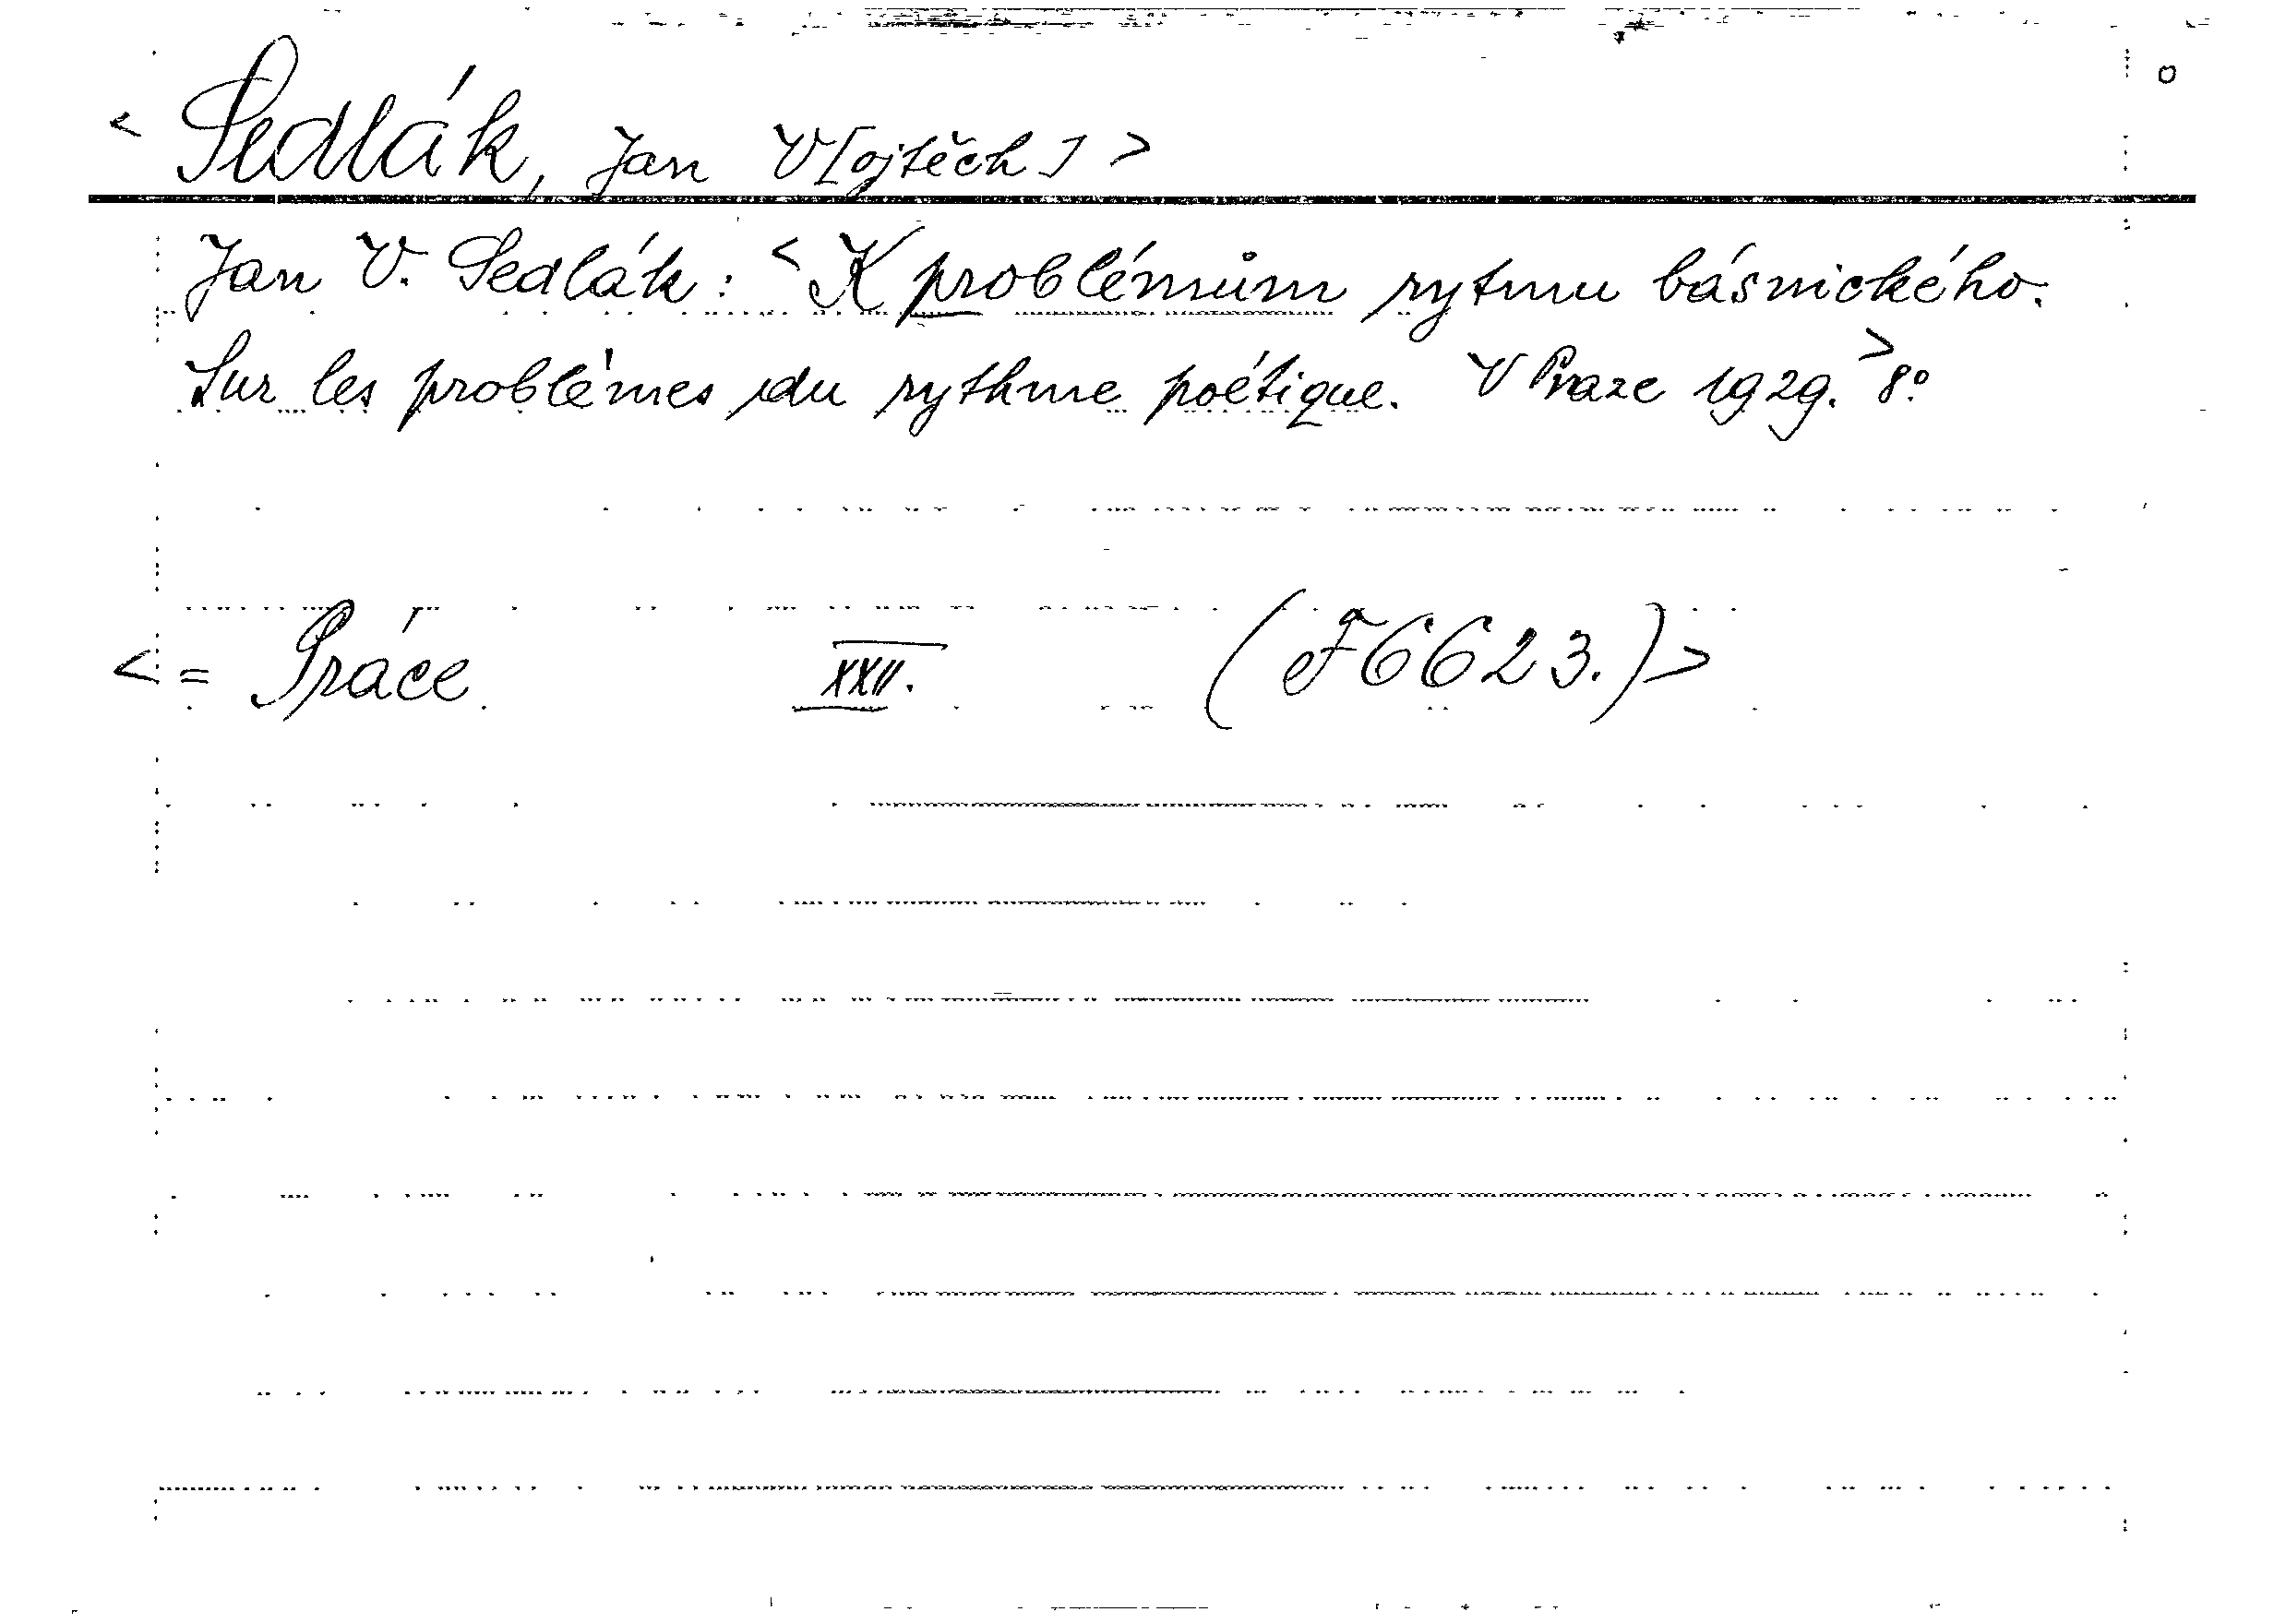 < Sedlák, Jan V[ojtěch] >
Jan V. Sedlák: <K problémům rytmu básnického.
Sur les problèmes du rythme poétique. V Praze 1929.> 8º
<= Práce XXII. (F6623.)>